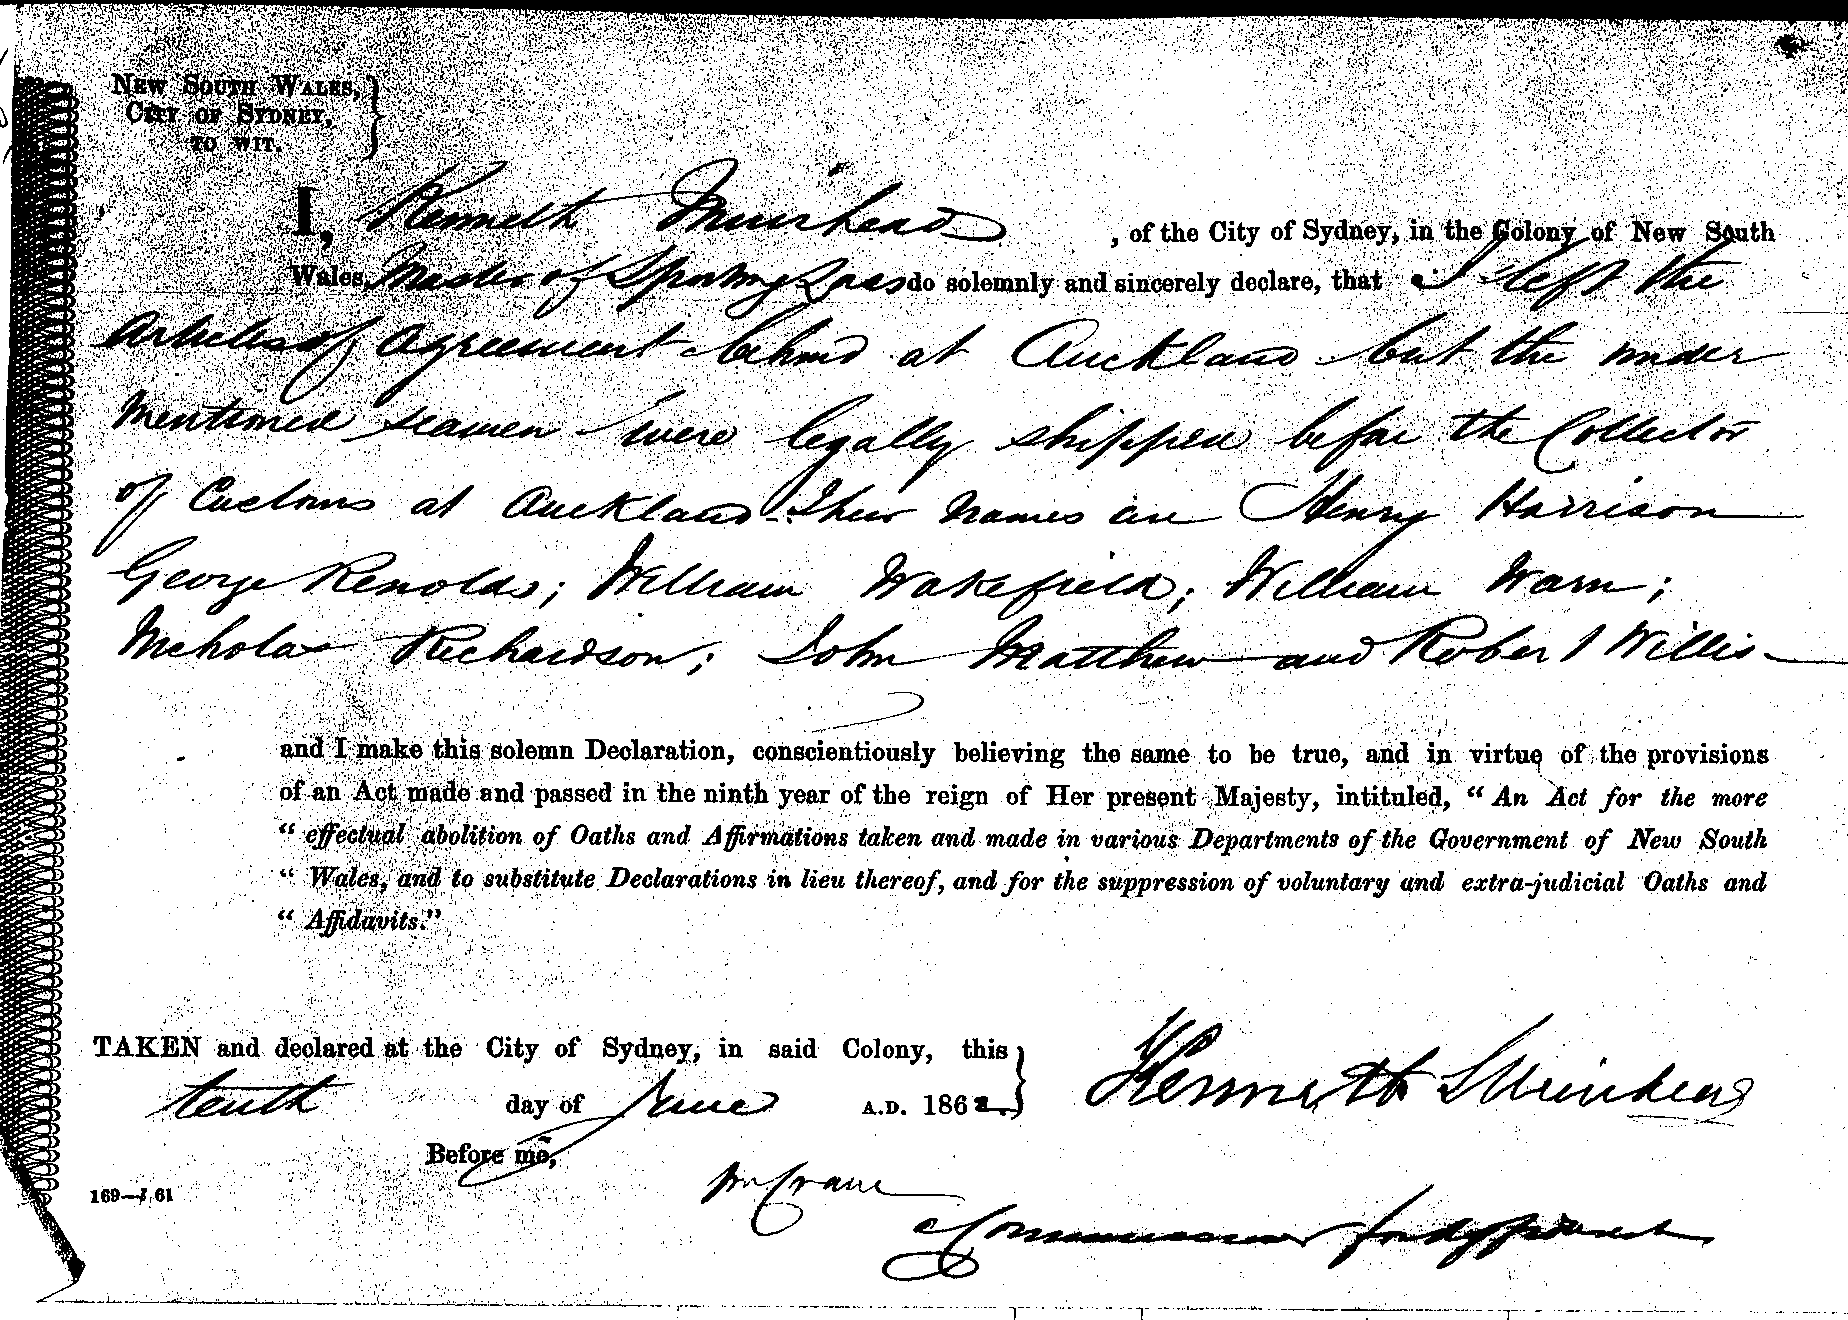 NEW SOUTH WALES,
CITY OF SYDNEY,
TO WIT.
I, Kenneth Muirhead, of the City of Sydney, in the Colony of New South
Wales, Master of Sporting Lass do solemnly and sincerely declare, that I left the
Articles of Agreement behind at Auckland but the under
mentioned seamen were legally shipped before the Collector
of Customs at Auckland. Their names are Henry Harrison
George Renolds; William Wakefield; William Warn;
Nicholas Richardson; John Matthew and Robert Willis
and I make this solemn Declaration, conscientiously believing the same to be true, and in virtue of the provisions
of an Act made and passed in the ninth year of the reign of Her present Majesty, intituled, “ An Act for the more
“ effectual abolition of Oaths and Affirmations taken and made in various Departments of the Government of New South
“ Wales, and to substitute Declarations in lieu thereof, and for the suppression of voluntary and extra-judicial Oaths and
“ Affidavits.”
TAKEN and declared at the City of Sydney, in said Colony, this
tenth day of June A.D. 1862.
Kenneth Muirhead
Before me,
Wm Crane
Commissioner for Affidavits
169—J 61